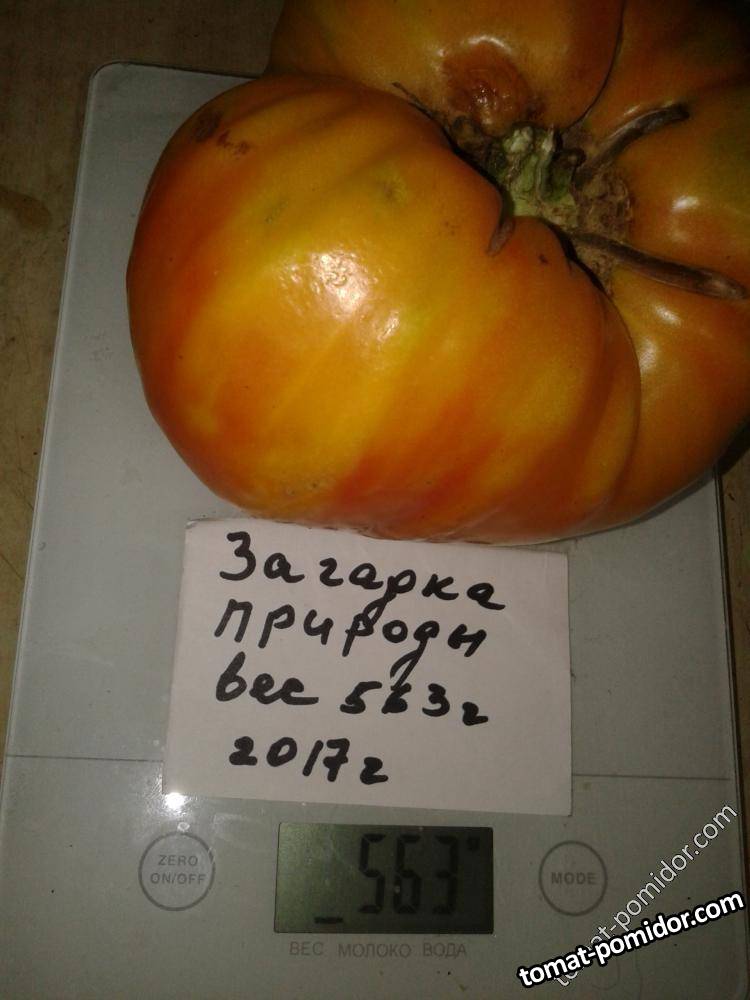 Загадка
природы
вес 563г
2017г
ZERO
ON/OFF
563
MODE
ВЕС МОЛОКО ВОДА
tomat-pomidor.com
tomat-pomidor.com